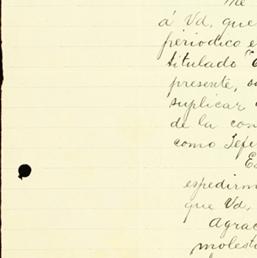 Me
á Vd. que
periodico e
titulado "E
presente, s
suplicar
de la con
como Jefe
Es
espedirm
que Vd.
Agrac
molest